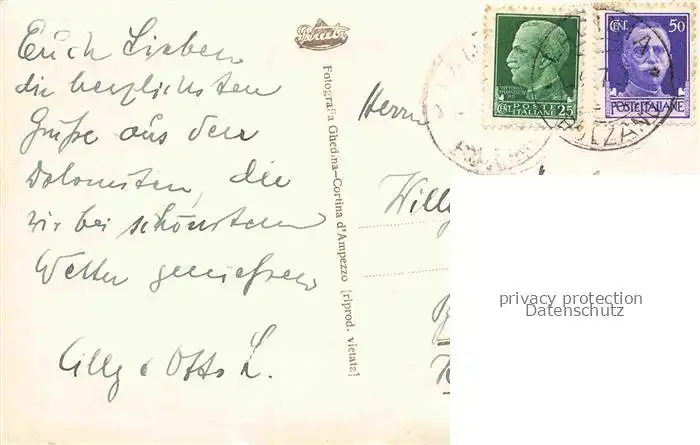 Euch Lieben
die herzlichsten
Grüße aus den
Dolomiten, die
wir bei schönstem
Wetter genießen
Cilly & Otto L.
Fotografia Ghedina-Cortina d'Ampezzo [riprod. vietata]
Herrn
Willy
CENT. 25
POSTE
ITALIANE
CENT. 50
POSTE ITALIANE
BOLZANO
privacy protection
Datenschutz